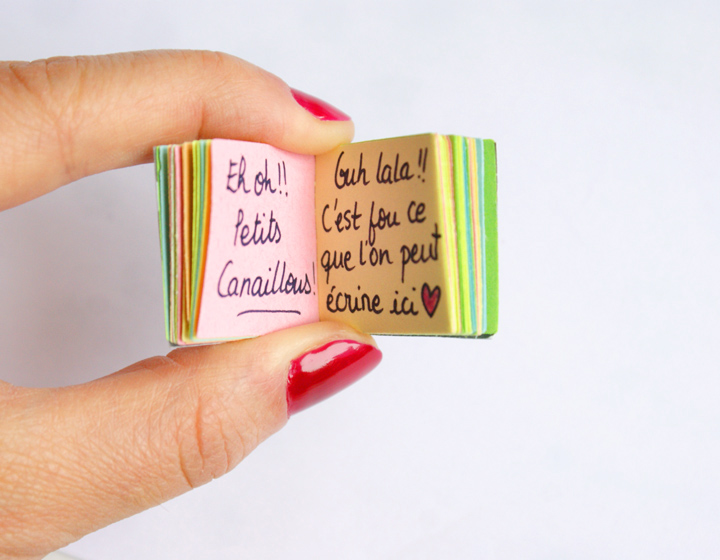 Eh oh!!
Petits
Canaillous!
Ouh lala!!
C'est fou ce
que l'on peut
écrire ici